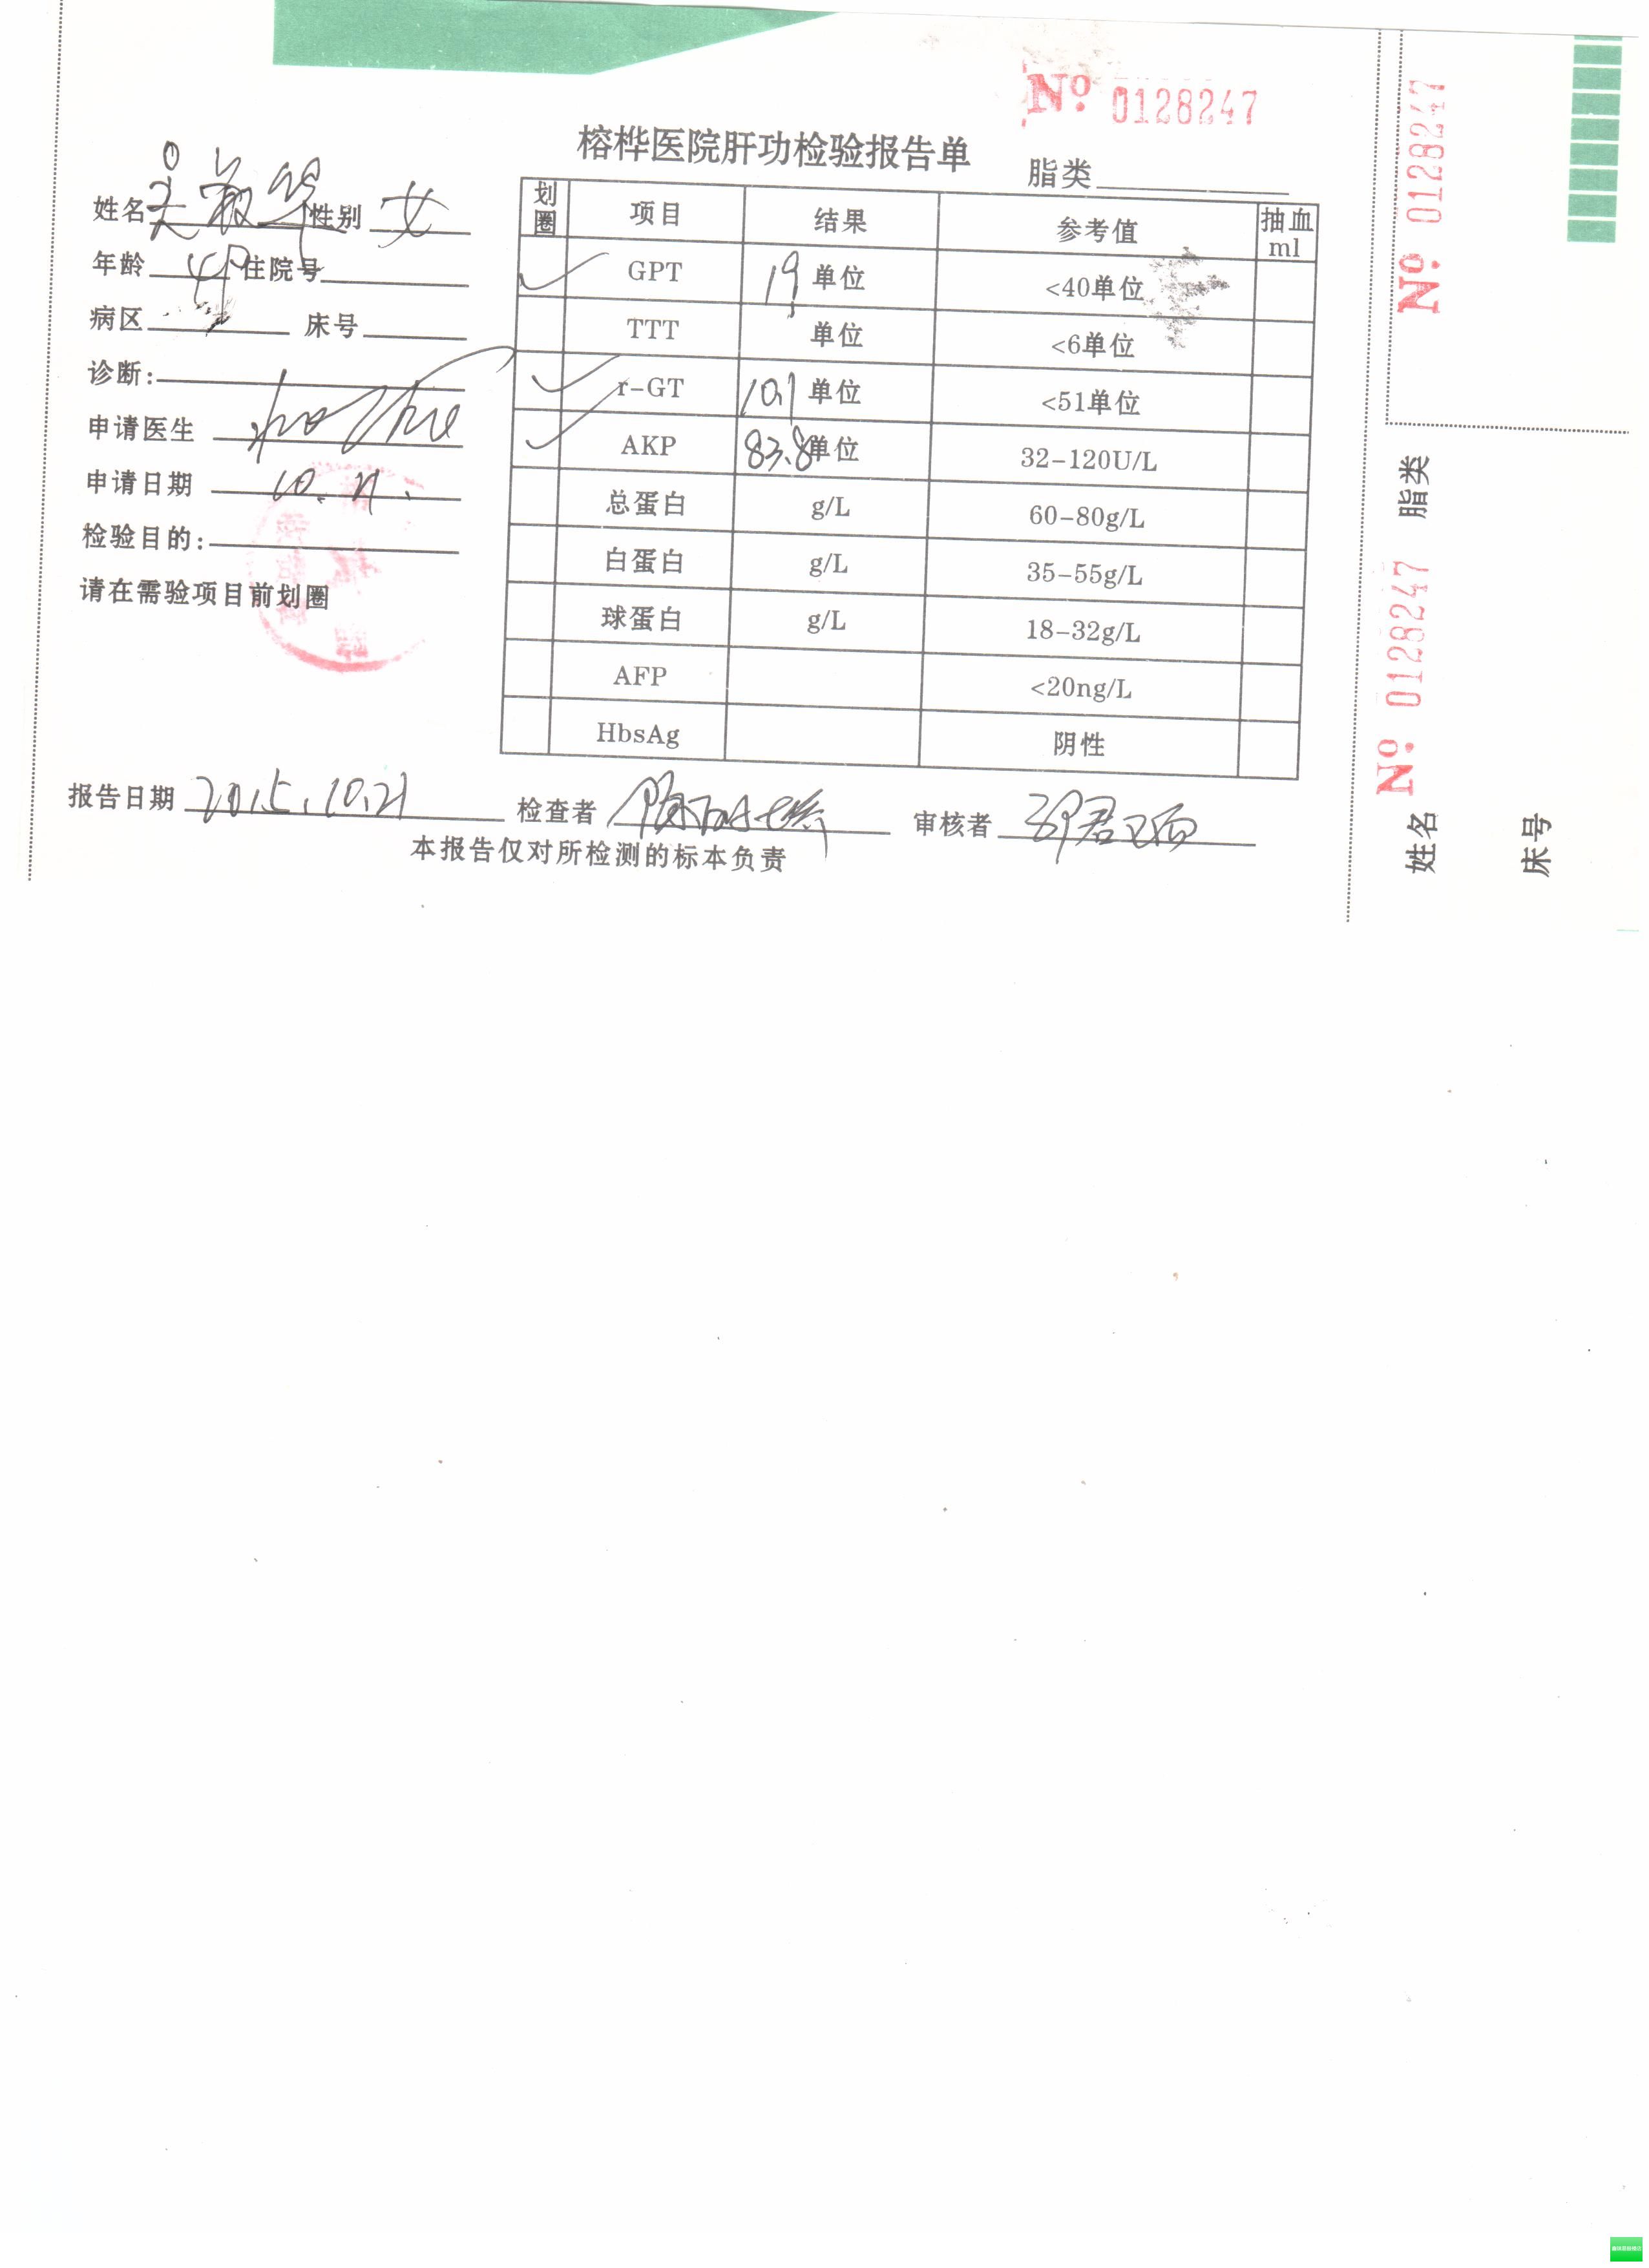 No 0128247
榕桦医院肝功检验报告单 脂类
姓名 吴淑华 性别 女
年龄 49 住院号
病区 床号
诊断:
申请医生
申请日期 10.21.
检验目的:
请在需验项目前划圈
划圈 项目 结果 参考值 抽血ml
✓ GPT 19 单位 <40单位
TTT 单位 <6单位
✓ r-GT 10.1 单位 <51单位
✓ AKP 83.8 单位 32-120U/L
总蛋白 g/L 60-80g/L
白蛋白 g/L 35-55g/L
球蛋白 g/L 18-32g/L
AFP <20ng/L
HbsAg 阴性
报告日期 2015.10.21 检查者 审核者
本报告仅对所检测的标本负责
No 0128247
脂类
No 0128247
姓名
床号